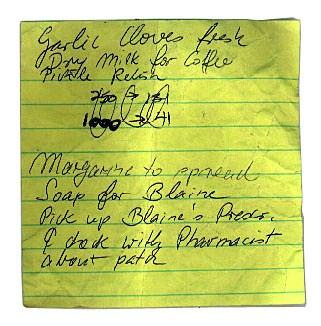 Garlic Cloves fresh
Dry Milk for Coffee
Pickle Relish
1000
Margarine to spread
Soap for Blaine
Pick up Blaine's Preds.
& with Pharmacist
about